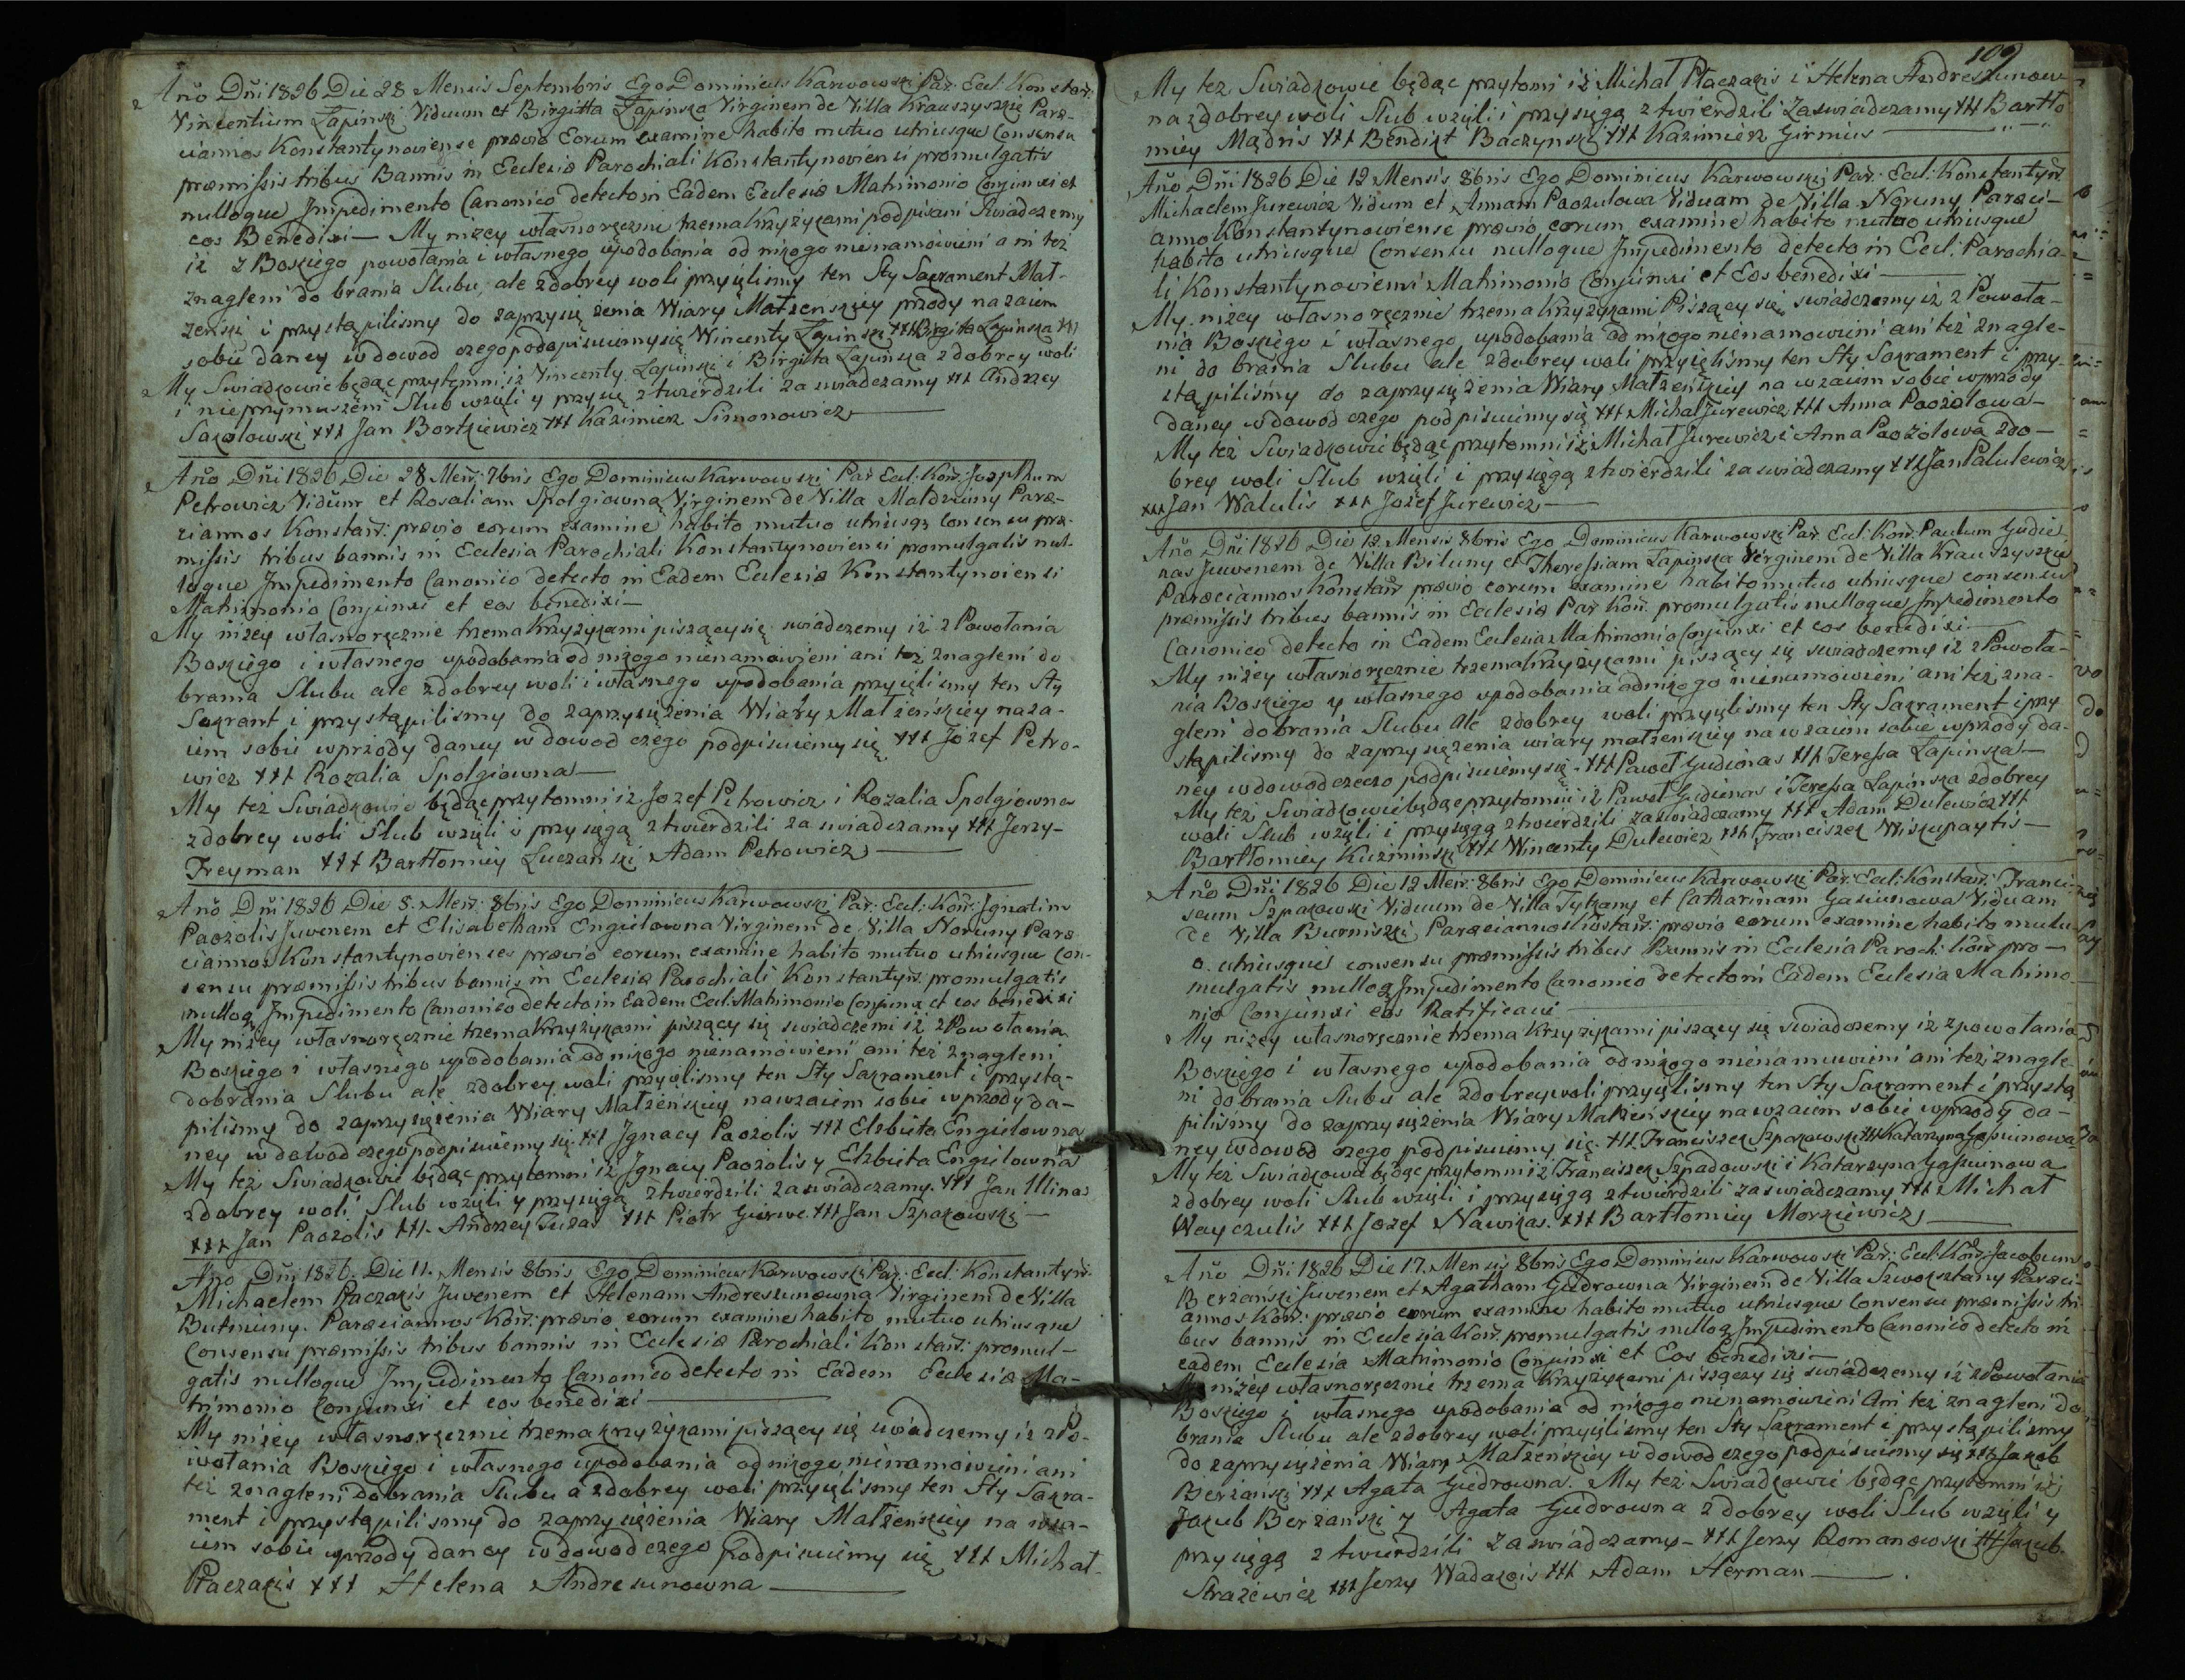 Año Dñi 1826 Die 28 Mensis Septembris Ego Dominicus Karwowski Par. Ecl. Konstañ.
Vincentium Łapinski Viduum et Birgitta Łapinska Virginem de Villa Krauszyszki Paræ-
ciannos Konstantynoviense prævio Eorum examine habito mutuo utriusque Consensu
præmissis tribus Bannis in Ecclesia Parochiali Konstantynoviensi promulgatis
nulloque Impedimento Canonico detecto in Eadem Ecclesia Matrimonio Conjunxi et
eos Benedixi — My nizey własnoręcznie trzema Krzyżykami podpisani Swiadczemy
iż z Boskiego powołania i własnego upodobania od nikogo nienamówieni ani też
znagleni do brania Slubu, ale zdobrey woli przyięlismy ten Sty Sakrament Mał-
zenski i przystąpilismy do zaprzysiężenia Wiary Małzenskiey przody nazaiem
sobie daney wdowod czego podpisuiemy się Wincenty Łapinski +++ Birgita Łapinska +++
My Swiadkowie będąc przytomni iz Vincenty Łapinski i Birgitta Łapinska zdobrey woli
i nieprzymuszeni Slub wzięli y przysię ztwierdzili zaswiadczamy +++ Andrzey
Sakołowski +++ Jan Bortkiewicz +++ Kazimierz Simonowicz —
Año Dñi 1826 Die 28 Meñ: 7bris Ego Dominicus Karwowski Par Ecl: Koñ: Josephum
Petrowicz Vidüm et Rosaliam Spolgiowna Virginem de Villa Maldziuny Paræ-
ciannos Konstañ: prævio eorum examine habito mutuo utriusq consensu præ-
missis tribus bannis in Ecclesia Parochiali Konstantynoviensi promulgatis nul-
loque Impedimento Canonico detecto in Eadem Ecclesia Konstantynoiensi
Matrimonio Conjunxi et eos benedixi —
My niżey własnoręcznie trzema Krzyżykami piszący się swiadczemy iż z Powołania
Boskiego i własnego upodobania od nikogo nienamowieni ani też znagleni do
brania Slubu ale zdobrey woli i własnego upodobania przyięlismy ten Sty
Sakrant i przystąpilismy do zaprzysiężenia Wiary Małżeńskiey naza-
iem sobie wprzody daney w dowod czego podpisuiemy się +++ Jozef Petro-
wicz +++ Rozalia Spolgiowna —
My też Swiadkowie będąc przytomni iż Jozef Petrowicz i Rozalia Spolgiowna
zdobrey woli Slub wzięli i przysięgą ztwierdzili zaswiadczamy +++ Jerzy-
Freyman +++ Bartłomiey Luczanski Adam Petrowicz —
Año Dñi 1826 Die 8. Meñ: 8bris Ego Dominicus Karwowski Par: Ecl: Koñ: Ignatius
Paozolis Juvenem et Elisabetham Engielowna Virginem de Villa Noruny Paræ
ciannos Konstantynovienses prævio eorum examine habito mutuo utriusque Con-
sensu præmissis tribus bannis in Ecclesia Parochiali Konstantyñ: promulgatis
nulloq Impedimento Canonico detecto in Eadem Ecl: Matrimonio Conjunxi et eos benedixi
My niżey własnoręcznie trzema Krzyżykami piszący się swiadczemi iż z Powołania
Boskiego i własnego upodobania od nikogo nienamówieni ani też znagleni
dobrania Slubu ale zdobrey woli przyięlismy ten Sty Sakrament i przystą-
pilismy do zaprzysiężenia Wiary Małżenskiey nawzaiem sobie wprzody da-
ney w dowod czego podpisuiemy się +++ Ignacy Paozolis +++ Elzbieta Engielowna
My też Swiadkowie będąc przytomni iż Ignacy Paozolis y Elzbieta Engielowna
zdobrey woli Slub wzięli y przysięgą ztwierdzili zaswiadczamy. +++ Jan Illinas
+++ Jan Paozolis +++ Andrzey Tuzas +++ Piotr Gierwe +++ Jan Szpakowski —
Año Dñi 1826. Die 11. Mensis 8bris Ego Dominicus Karwowski Par: Ecl: Konstantyñ:
Michaelem Ptaczakis Juvenem et Helenam Andreszunowna Virginem de Villa
Butmiuny. Paræciannos Koñ: prævio eorum examine habito mutuo utriusque
Consensu præmissis tribus bannis in Ecclesia Parochiali Konstañ: promul-
gatis nulloque Impedimento Canonico detecto in Eadem Ecclesia Ma-
trimonio Conjunxi et eos benedixi —
My niżey własnoręcznie trzema krzyżykami piszący się swiadczemy iż z Po-
wołania Boskiego i własnego upodobania od nikogo nienamowieni ani
też znagleni dobrania Slubu a zdobrey woli przyięlismy ten Sty Sakra-
ment i przystąpilismy do zaprzysiężenia Wiary Małżenskiey na wza-
iem sobie wprzody daney w dowod czego podpisuiemy się +++ Michał
Ptaczakis +++ Helena Andresunowna —
109
My też Swiadkowie będąc przytomi iż Michał Ptaczakis i Helena Andreszunow-
na zdobrey woli Slub wzięli i przysięgą ztwierdzili Zaswiadczamy +++ Bartło
miey Mądris +++ Bendikt Baczynski +++ Kazimierz Girnius —
Año Dñi 1826 Die 12 Mensis 8bris Ego Dominicus Karwowski Par: Ecl: Konstantyñ
Michaelem Jurewicz Vidum et Annam Paozulowa Viduam de Villa Noruny Paræci-
anno Konstantynowiense prævio eorum examine habito mutuo utriusque
habito utriusque Consensu nulloque Impedimento detecto in Ecl: Parochia-
li Konstantynoviensi Matrimonio Conjunxi et Eos benedixi —
My niżey własnoręcznie trzema Krzyżykami Piszący się swiadczemy iż z Powoła-
nia Boskiego i własnego upodobania od nikogo nienamowieni ani też znagle-
ni do brania Slubu ale zdobrey woli przyięlismy ten Sty Sakrament i przy-
stąpilismy do zaprzysiężenia Wiary Małżenskiey na wzaiem sobie wprzody
daney w dowod czego podpisuiemy się +++ Michał Jurewicz +++ Anna Paozolowa —
My też Swiadkowie będąc przytomni iż Michał Jurewicz i Anna Paozolowa zdo-
brey woli Slub wzięli i przysięgą ztwierdzili zaswiadczamy +++ Jan Palulewicz
+++ Jan Walulis +++ Jozef Jurewicz —
Año Dñi 1826 Die 12. Mensis 8bris Ego Dominicus Karwowski Par. Ecl: Koñ: Paulum Gudie
nas Juvenem de Villa Biluny et Theressiam Łapinska Virginem de Villa Krauszyszki
Paræciannos Konstañ prævio eorum examine habito mutuo utriusque consensu
præmissis tribus bannis in Ecclesia Par Koñ. promulgatis nulloque Impedimento
Canonico detecto in Eadem Ecclesia Matrimonio Conjunxi et eos benedixi —
My niżey własnoręcznie trzema Krzyżykami piszący się swiadczemy iż z Powoła-
nia Boskiego y własnego upodobania od nikogo nienamowieni ani też zna-
gleni dobrania Slubu ale zdobrey woli przyięlismy ten Sty Sakrament i przy
stąpilismy do zaprzysiężenia wiary małżenskiey na wzaiem sobie wprzody da-
ney w dowod czego podpisuiemy się. +++ Paweł Gudionas +++ Teressa Łapinska —
My też Swiadkowie będąc przytomni iż Paweł Gudienas i Teressa Łapinska zdobrey
woli Slub wzięli i przysięgą ztwierdzili zaswiadczamy +++ Adam Dulewicz +++
Bartłomiey Kuziminski +++ Wincenty Dulewicz +++ Franciszek Wiskupaytis —
Año Dñi 1826 Die 12 Meñ: 8bris Ego Dominicus Karwowski Par: Ecl: Konstañ: Franci-
scum Szpakowski Viduum de Villa Tytkany et Catharinam Gasiunowa Viduam
de Villa Burniszki Paræciannos Kostañ: prævio eorum examine habito mutu-
o utriusque consensu præmissis tribus Bannis in Ecclesia Paroch: Koñ pro-
mulgatis nulloq Impedimento Canonico detecto in Eadem Ecclesia Matrimo-
nio Conjunxi eos Ratificavi —
My niżey własnoręcznie trzema Krzyżykami piszący się swiadczemy iż zpowołania
Boskiego i własnego upodobania od nikogo nienamuwieni ani też znagle-
ni dobrania slubu ale zdobrey woli przyięlismy ten Sty Sakrament i przystą
pilismy do zaprzysiężenia Wiary Małżenskiey na wzaiem sobie wprzody da-
ney wdowod czego podpisuiemy się. +++ Franciszek Szpakowski +++ Katarzyna Gasiunowa
My też Swiadkowie będąc przytomni iż Franciszek Szpadowski i Katarzyna Gasiunowa
zdobrey woli Slub wzięli i przysięgą ztwierdzili zaswiadczamy +++ Michał
Wayczulis +++ Jozef Nawikas. +++ Bartłomiey Morkiewicz —
Año Dñi 1826 Die 17. Mensis 8bris Ego Dominicus Karwowski Par: Ecl: Koñ: Jacobum
Berzanski Juvenem et Agatham Giedrowna Virginem de Villa Szwoksztany Paræci-
annos Koñ: prævio eorum examine habito mutuo utriusque Consensu præmissis tri
bus bannis in Ecclesia Koñ. promulgatis nulloq Impedimento Canonico detecto in
eadem Ecclesia Matrimonio Conjunxi et Eos benedixi —
My niżey własnoręcznie trzema Krzyżykami piszączy się swiadczemy iż z Powołania
Boskiego i własnego upodobania od nikogo nienamówieni Ani też znagleni do
brania Slubu ale zdobrey woli przyięlismy ten Sty Sakrament i przystąpilismy
do zaprzysiężenia Wiary Małżeńskiey w dowod czego podpisuiemy się +++ Jakob
Berżanski +++ Agata Giedrowna. My też Swiadkowie będąc przytomni iż
Jakub Berzanski y Agata Giedrowna zdobrey woli Slub wzięli y
przysięgą ztwierdzili zaswiadczamy — +++ Jerzy Romanowski +++ Jakub.
Strażewicz +++ Jerzy Wadakois +++ Adam Herman —